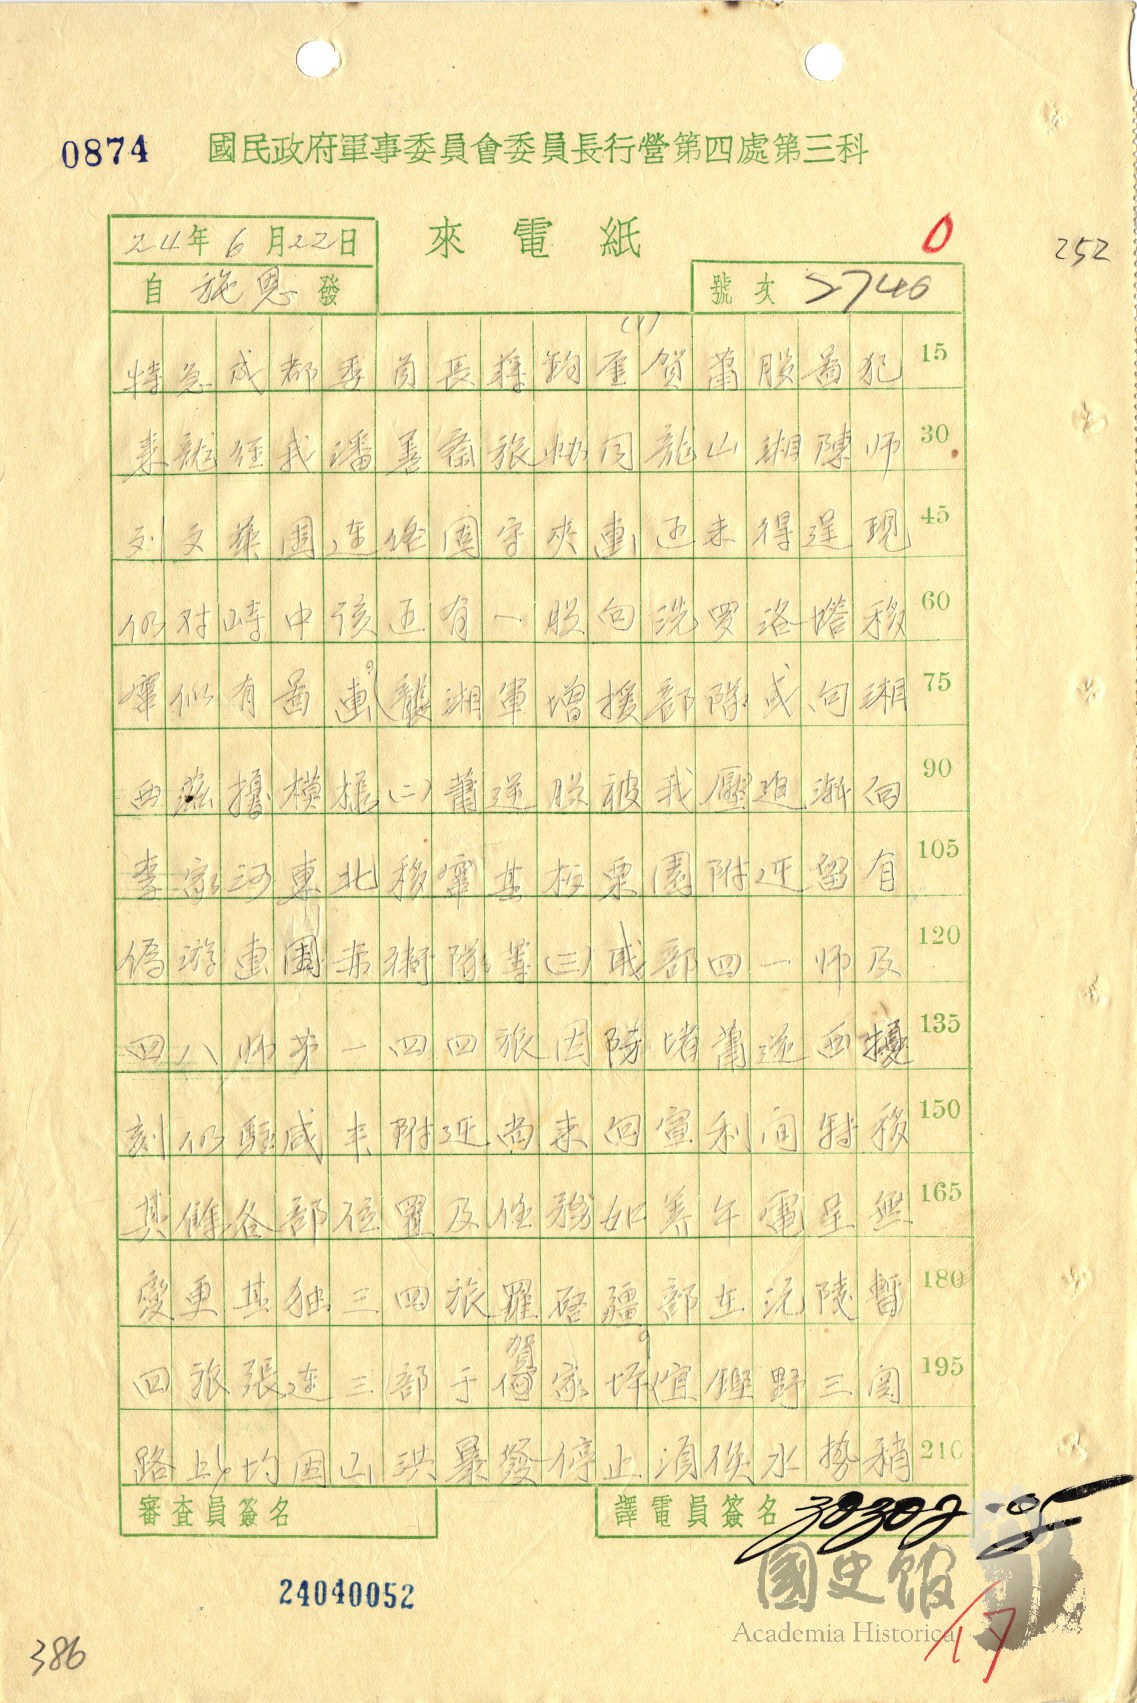 0874
國民政府軍事委員會委員長行營第四處第三科
24年6月22日
來電紙
0
252
自施恩發
號次 2746
(1)
特急成都委員長蔣鈞鑒賀蕭股酋犯 15
來龍經我潘善齋旅協同龍山湘陳师 30
刘文華团连络固守夾击匪未得逞現 45
仍对峙中該匪有一股向洗罗洛塔移 60
竄似有酋击襲湘軍增援部隊或向湘 75
西竄擾模樣(二)蕭逆股被我壓迫漸向 90
李家河東北移竄其板栗園附近留有 105
偽游击團赤術隊等(三)職部四一师及 120
四八师第一四四旅因防堵蕭逆西擾 135
刻仍駐咸丰附近尚未回宣利间轉移 150
其餘各部位置及任務如养午電呈無 165
變更其独三四旅羅啓疆部在沅陵暫 180
賀
四旅張连三部于家坪宣鶴野三関 195
路上均因山洪暴發停止須俟水勢稍 210
審查員簽名
譯電員簽名
24040052
國史館
Academia Historica
17
386